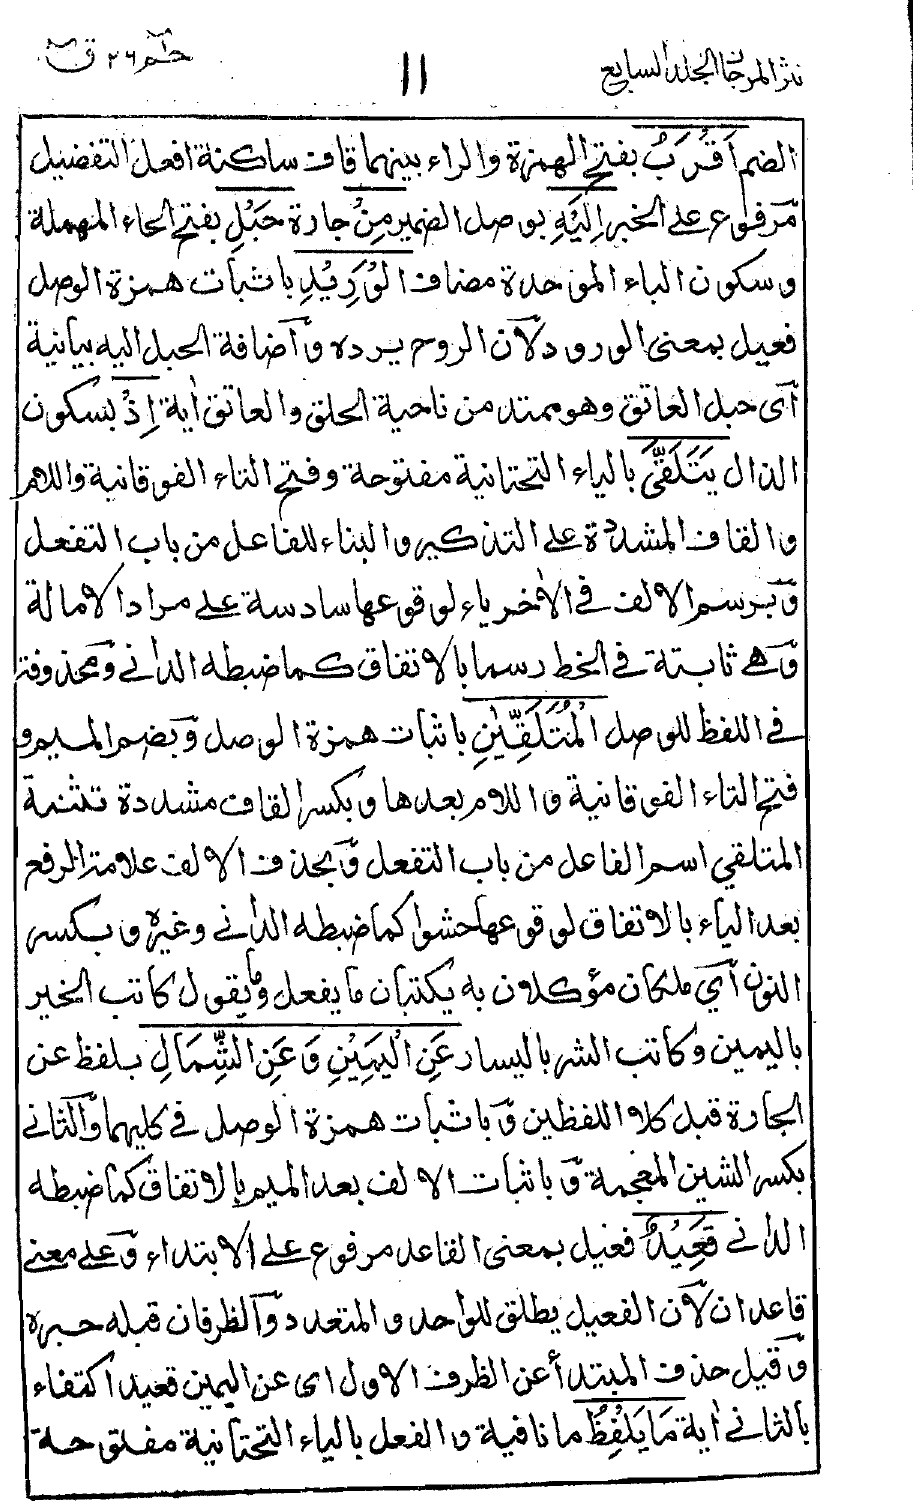 نثر المرجان الجلد السابع
١١
حٰم ٢٦ ق
الضم اَقْرَبُ بفتح الهمزة والراء بينهما قاف ساكنة افعل التفضيل
مرفوع على الخبر اِلَيْهِ بوصل الضمير مِنْ جارة حَبْلِ بفتح الحاء المهملة
وسكون الباء الموحدة مضاف الْوَرِيْدِ باثبات همزة الوصل
فعيل بمعنى الورود لان الروح يرده واضافة الحبل اليه بيانية
اى حبل العاتق وهو ممتد من ناحية الحلق والعاتق اٰية اِذْ بسكون
الذال يَتَلَقَّى بالياء التحتانية مفتوحة وفتح التاء الفوقانية واللام
والقاف المشددة على التذكير والبناء للفاعل من باب التفعل
وبرسم الالف فى الاخر ياء لوقوعها سادسة على مراد الامالة
وهى ثابتة فى الخط رسما بالاتفاق كما ضبطه الدانى ومحذوفة
فى اللفظ للوصل الْمُتَلَقِّيٰنِ باثبات همزة الوصل وبضم الميم و
فتح التاء الفوقانية واللام بعدها وبكسر القاف مشددة تثنية
المتلقي اسم الفاعل من باب التفعل وبحذف الالف علامة الرفع
بعد الياء بالاتفاق لوقوعها حشوا كما ضبطه الدانى وغيره وبكسر
النون اى ملكان مؤكلان به يكتبان ما يفعل وما يقول كاتب الخير
باليمين وكاتب الشر باليسار عَنِ الْيَمِيْنِ وَعَنِ الشِّمَالِ بلفظ عن
الجارة قبل كلا اللفظين وباثبات همزة الوصل فى كليهما والثانى
بكسر الشين المعجمة وباثبات الالف بعد الميم بالاتفاق كما ضبطه
الدانى قَعِيْدٌ فعيل بمعنى القاعد مرفوع على الابتداء وعلى معنى
قاعدان لان الفعيل يطلق للواحد والمتعدد والظرفان قبله خبره
وقيل حذف المبتدأ عن الظرف الاول اى عن اليمين قعيد اكتفاء
بالثانى اٰية مَا يَلْفِظُ ما نافية والفعل بالياء التحتانية مفتوحة